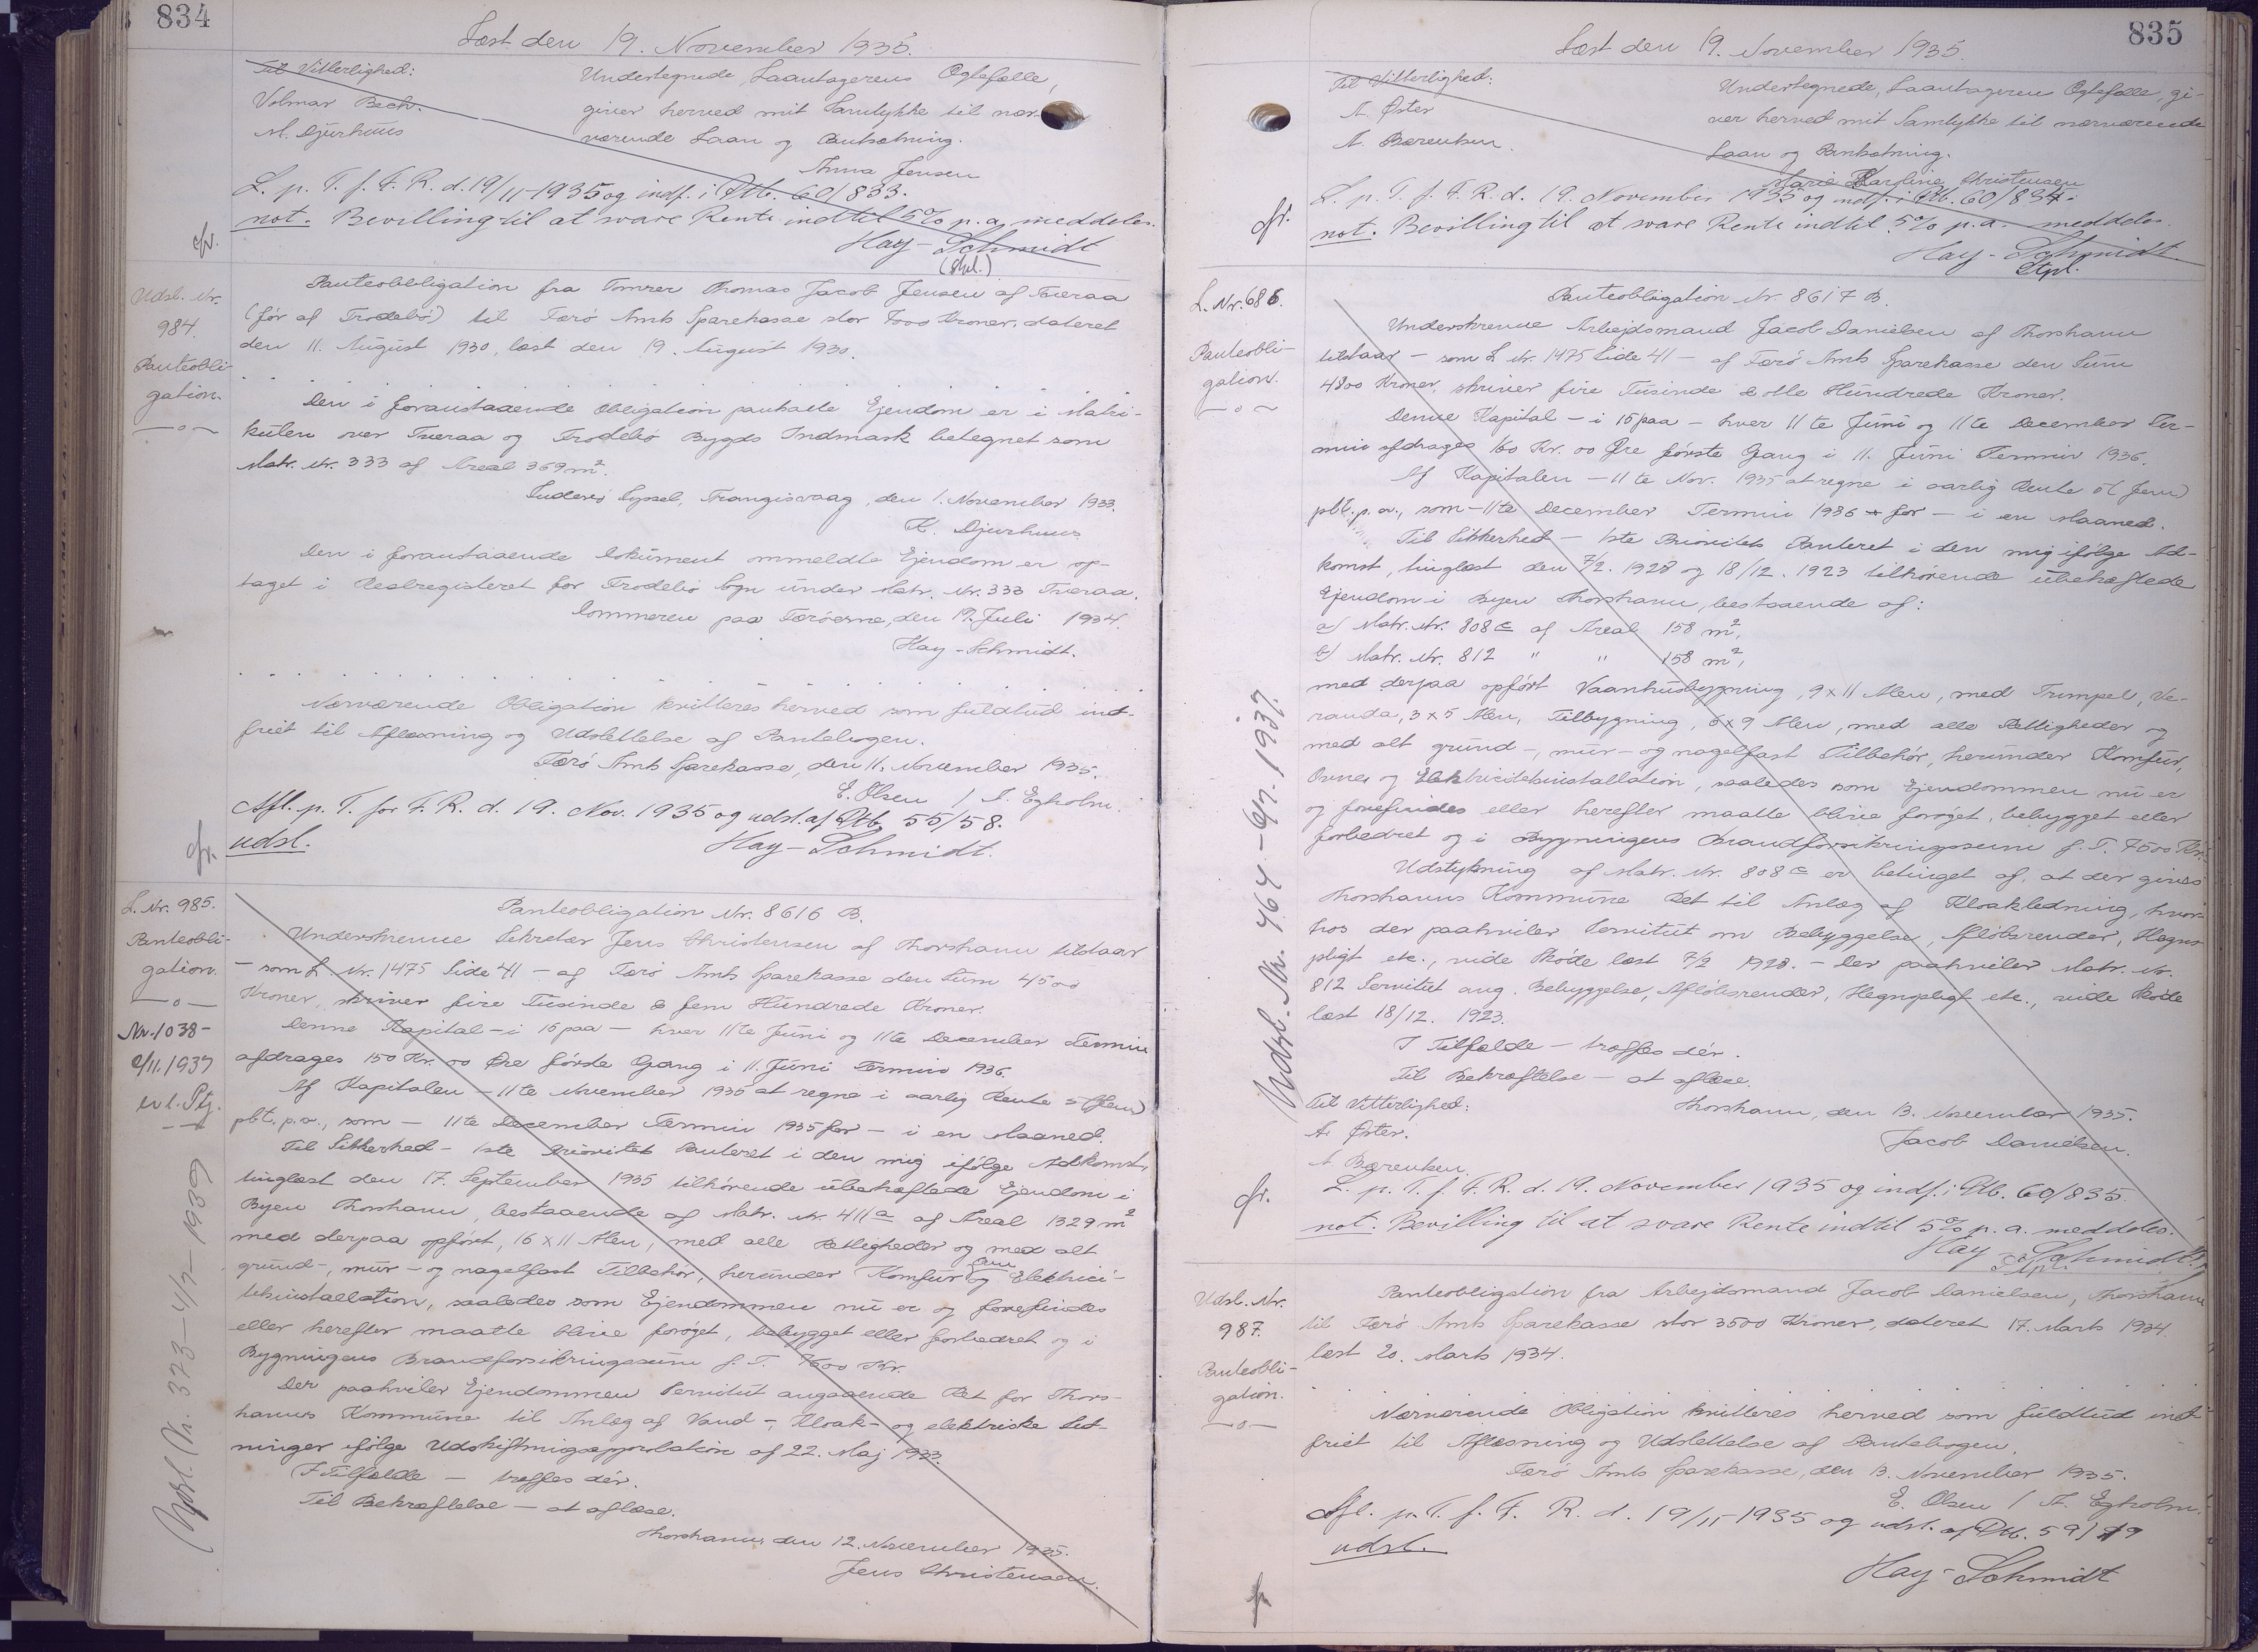 834
Læst den 19. November 1935.
Til Vitterlighed:
Volmar Bech.
M. Djurhuus
Undertegnede, Laantagerens Ægtefælle,
giver herved mit Samtykke til nær-
værende Laan og Pantsætning.
Anna Jensen
L. p. T. f. F. R. d. 19/11-1935 og indf. i Ptb. 60/833.
not. Bevilling til at svare Rente indtil 5% p. a. meddeles.
Hay-Schmidt
Udsl. Nr.
984.
Panteobli-
gation.
Panteobligation fra Tømrer Thomas Jacob Jensen af Tveraa
(før af Frodebø) til Færø Amts Sparekasse stor 7000 Kroner, dateret
den 11. August 1930, læst den 19. August 1930.
Den i foranstaaende Obligation pantsatte Ejendom er i Matri-
kulen over Tveraa og Frodebø Bygds Indmark betegnet som
Matr. Nr. 333 af Areal 369 m².
Suderø Syssel, Trangisvaag, den 1. November 1933.
K. Djurhuus
Den i foranstaaende Dokument ommeldte Ejendom er op-
taget i Realregisteret for Frodebø Sogn under Matr. Nr. 333 Tveraa.
Sorenskriveren paa Færøerne, den 19. Juli 1934.
Hay-Schmidt.
Nærværende Obligation kvitteres herved som fuldtud ind-
friet til Aflæsning og Udslettelse af Pantebogen.
Færø Amts Sparekasse, den 11. November 1935.
E. Olsen / A. Egholm.
Afl. p. T. for F. R. d. 19. Nov. 1935 og udsl. af Ptb. 55/58.
udsl.
Hay-Schmidt.
L. Nr. 985.
Panteobli-
gation.
Nr. 1038-
1937
Panteobligation Nr. 8616 B.
Underskrevne Sekretær Jens Christensen af Thorshavn tilstaar
- som L. Nr. 1475 Side 41 - af Færø Amts Sparekasse den Sum 4500
Kroner, skriver fire Tusinde & fem Hundrede Kroner.
Denne Kapital - i 15 paa - hver 11te Juni og 11te December Termin
afdrages 150 Kr. 00 Øre første Gang i 11. Juni Termin 1936.
Af Kapitalen - 11te November 1935 at regne i aarlig Rente 5 (fem)
pCt. p.a., som - 11te December Termin 1935 for - i en Maaned.
Til Sikkerhed - 1ste Prioritets Panteret i den mig ifølge Adkomst,
tinglæst den 17. September 1935 tilhørende ubehæftede Ejendom i
Byen Thorshavn, bestaaende af Matr. Nr. 411 a af Areal 1329 m²
med derpaa opført, 16 x 11 Alen, med alle Rettigheder og med alt
grund-, mur- og nagelfast Tilbehør, herunder Komfur og Elektrici-
tetsinstallation, saaledes som Ejendommen nu er og forefindes
eller herefter maatte blive forøget, bebygget eller forbedret og i
Bygningens Brandforsikringssum f. T. 7600 Kr.
Der paahviler Ejendommen Servitut angaaende Ret for Thors-
havns Kommune til Anlæg af Vand-, Kloak- og elektriske Led-
ninger ifølge Udskiftningsapprobation af 22. Maj 1933.
I Tilfælde - træffes dér.
Til Bekræftelse - at aflæse.
Thorshavn, den 12. November 1935.
Jens Christensen.
835
Læst den 19. November 1935.
Til Vitterlighed:
A. Øster
A. Bærentsen.
Undertegnede, Laantagerens Ægtefælle, gi-
ver herved mit Samtykke til nærværende
Laan og Pantsætning.
Christensen
L. p. T. f. F. R. d. 19. November 1935 og indf. i Ptb. 60/834.
not. Bevilling til at svare Rente indtil 5% p.a. meddeles
Hay-Schmidt.
Stpl.
L. Nr. 686.
Panteobli-
gation.
Udsl. Nr. 464 - 1937.
Panteobligation Nr. 8617 B.
Underskrevne Arbejdsmand Jacob Danielsen af Thorshavn
tilstaar - som L Nr. 1475 Side 41 - af Færø Amts Sparekasse den Sum
4800 Kroner, skriver fire Tusinde & otte Hundrede Kroner.
Denne Kapital - i 15 paa - hver 11te Juni og 11te December Ter-
min afdrages 160 Kr. 00 Øre første Gang i 11. Juni Termin 1936.
Af Kapitalen - 11te Nov. 1935 at regne i aarlig Rente 5 (fem)
pCt. p.a., som - 11te December Termin 1936 for - i en Maaned.
Til Sikkerhed - 1ste Prioritets Panteret i den mig ifølge Ad-
komst, tinglæst den 7/2. 1928 og 18/12. 1923 tilhørende ubehæftede
Ejendom i Byen Thorshavn, bestaaende af:
a) Matr. Nr. 808 c af Areal 158 m²,
b) Matr. Nr. 812 " " 158 m²,
med derpaa opført Vaanhusbygning, 9 x 11 Alen, med Trempel, Ve-
randa, 3 x 5 Alen, Tilbygning, 6 x 9 Alen, med alle Rettigheder og
med alt grund-, mur- og nagelfast Tilbehør, herunder Komfur,
Ovne og Elektricitetsinstallation, saaledes som Ejendommen nu er
og forefindes eller herefter maatte blive forøget, bebygget eller
forbedret og i Bygningens Brandforsikringssum f. T. 7500 Kr.
Udstykning af Matr. Nr. 808 c er betinget af, at der gives
Thorshavns Kommune Ret til Anlæg af Kloakledning, hvor-
hos der paahviler Servitut om Bebyggelse, Afløbsrender, Hegns-
pligt etc., vide Skøde læst 7/2 1928. - Der paahviler Matr. Nr.
812 Servitut ang. Bebyggelse, Afløbsrender, Hegnspligt etc., vide Skøde
læst 18/12. 1923.
I Tilfælde - træffes dér.
Til Bekræftelse - at aflæse.
Til Vitterlighed:
A. Øster.
A. Bærentsen.
Thorshavn, den 13. November 1935.
Jacob Danielsen.
L. p. T. f. F. R. d. 19. November 1935 og indf. i Ptb. 60/835.
not. Bevilling til at svare Rente indtil 5% p. a. meddeles.
Hay-Schmidt.
Stpl.
Udsl. Nr.
987.
Panteobli-
gation.
Panteobligation fra Arbejdsmand Jacob Danielsen, Thorshavn
til Færø Amts Sparekasse stor 3500 Kroner, dateret 17. Marts 1934.
læst 20. Marts 1934.
Nærværende Obligation kvitteres herved som fuldtud ind-
friet til Aflæsning og Udslettelse af Pantebogen.
Færø Amts Sparekasse, den 13. November 1935.
E. Olsen / A. Egholm.
Afl. p. T. f. F. R. d. 19/11-1935 og udsl. af Ptb. 59/
udsl.
Hay-Schmidt